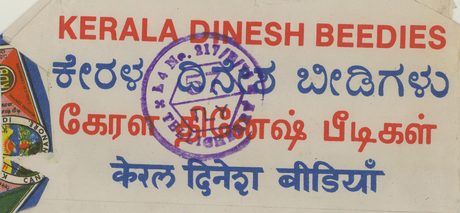 KERALA DINESH BEEDIES
ಕೇರಳ ದಿನೇಶ ಬೀಡಿಗಳು
கேரள தினேஷ் பீடிகள்
केरल दिनेश बीडियाँ